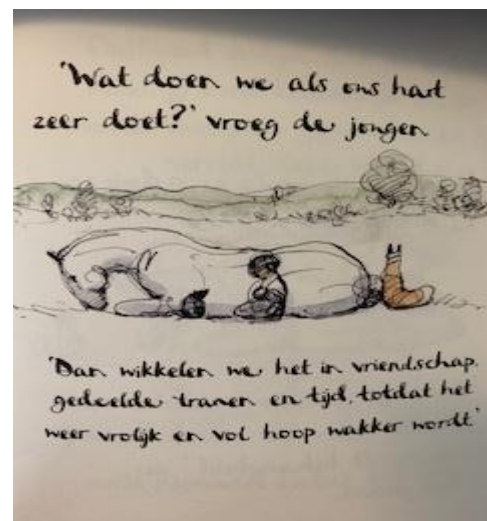 'Wat doen we als ons hart
zeer doet?' vroeg de jongen
'Dan wikkelen we het in vriendschap,
gedeelde tranen en tijd, totdat het
weer vrolijk en vol hoop wakker wordt.'